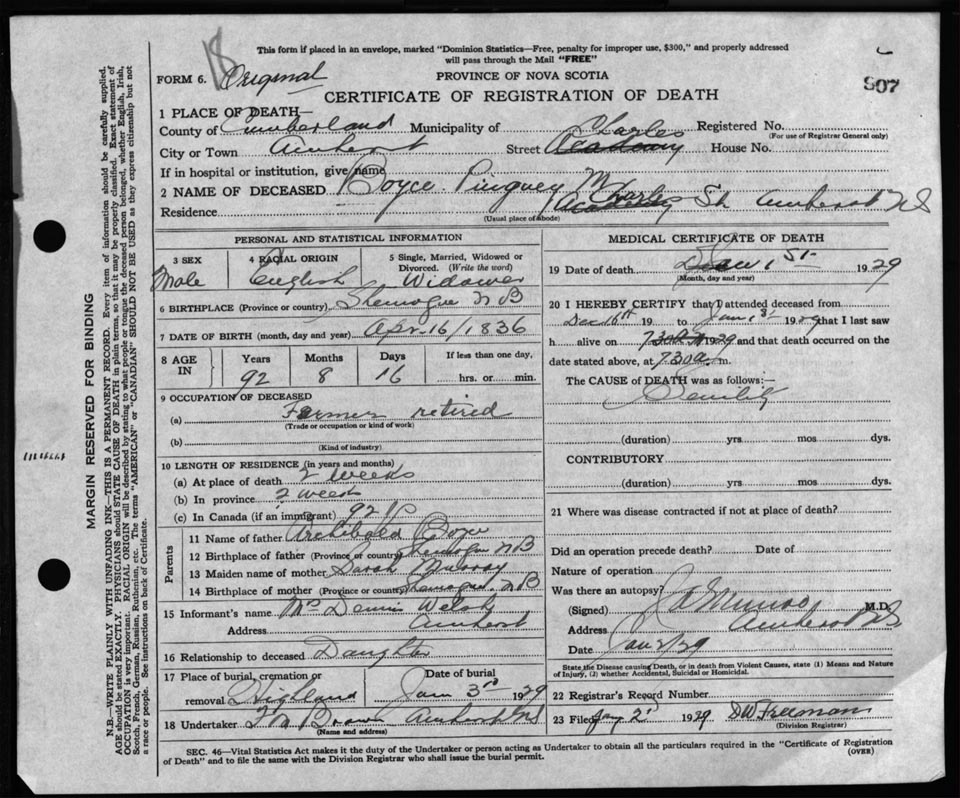 This form if placed in an envelope, marked "Dominion Statistics—Free, penalty for improper use, $300," and properly addressed
will pass through the Mail "FREE"
FORM 6. Original
PROVINCE OF NOVA SCOTIA
907
CERTIFICATE OF REGISTRATION OF DEATH
1 PLACE OF DEATH—
County of Cumberland Municipality of Registered No.
(For use of Registrar General only)
City or Town Amherst Street Charles Academy House No.
If in hospital or institution, give name
2 NAME OF DECEASED Boyce M
Residence Academy Charles St Amherst NS
(Usual place of abode)
PERSONAL AND STATISTICAL INFORMATION
3 SEX 4 RACIAL ORIGIN 5 Single, Married, Widowed or Divorced. (Write the word)
Male English Widower
6 BIRTHPLACE (Province or country) Shemogue NB
7 DATE OF BIRTH (month, day and year) Apr. 16/1836
8 AGE IN Years Months Days If less than one day,
92 8 16 hrs. or min.
9 OCCUPATION OF DECEASED
(a) Farmer retired
(Trade or occupation or kind of work)
(b)
(Kind of industry)
10 LENGTH OF RESIDENCE (in years and months)
(a) At place of death 2 weeks
(b) In province 2 weeks
(c) In Canada (if an immigrant) 92
Parents
11 Name of father Archibald Boyce
12 Birthplace of father (Province or country) Shemogue NB
13 Maiden name of mother Sarah Murray
14 Birthplace of mother (Province or country) Shemogue NB
15 Informant's name Mrs Dennis Welsh
Address Amherst
16 Relationship to deceased Daughter
17 Place of burial, cremation or removal Highland Date of burial Jan 3rd 1929
18 Undertaker Brown Amherst NS
(Name and address)
MEDICAL CERTIFICATE OF DEATH
19 Date of death Jan 1st 1929
(Month, day and year)
20 I HEREBY CERTIFY that I attended deceased from
Dec 16th 19 to Jan 1st 1929 that I last saw
h alive on 1929 and that death occurred on the
date stated above, at 7.30 a. m.
The CAUSE of DEATH was as follows:—
Senility
(duration) yrs mos dys.
CONTRIBUTORY
(duration) yrs mos dys.
21 Where was disease contracted if not at place of death?
Did an operation precede death? Date of
Nature of operation
Was there an autopsy?
(Signed) Munro M.D.
Address Amherst NS
Date Jan 2/29
State the Disease causing Death, or in death from Violent Causes, state (1) Means and Nature
of Injury, (2) whether Accidental, Suicidal or Homicidal.
22 Registrar's Record Number
23 Filed Jany 2d 1929 DW Freeman
(Division Registrar)
SEC. 46—Vital Statistics Act makes it the duty of the Undertaker or person acting as Undertaker to obtain all the particulars required in the "Certificate of Registration
of Death" and to file the same with the Division Registrar who shall issue the burial permit.
(OVER)
MARGIN RESERVED FOR BINDING
N.B.—WRITE PLAINLY WITH UNFADING INK—THIS IS A PERMANENT RECORD. Every item of information should be carefully supplied.
AGE should be stated EXACTLY. PHYSICIANS should STATE CAUSE OF DEATH in plain terms, so that it may be properly classified. Exact statement of
OCCUPATION is very important. RACIAL ORIGIN will be described by stating to what people or tongue the deceased person belonged, whether English, Irish,
Scotch, French, German, Russian, Ruthenian, etc. The terms "AMERICAN" or "CANADIAN" SHOULD NOT BE USED as they express citizenship but not
a race or people. See instructions on back of Certificate.